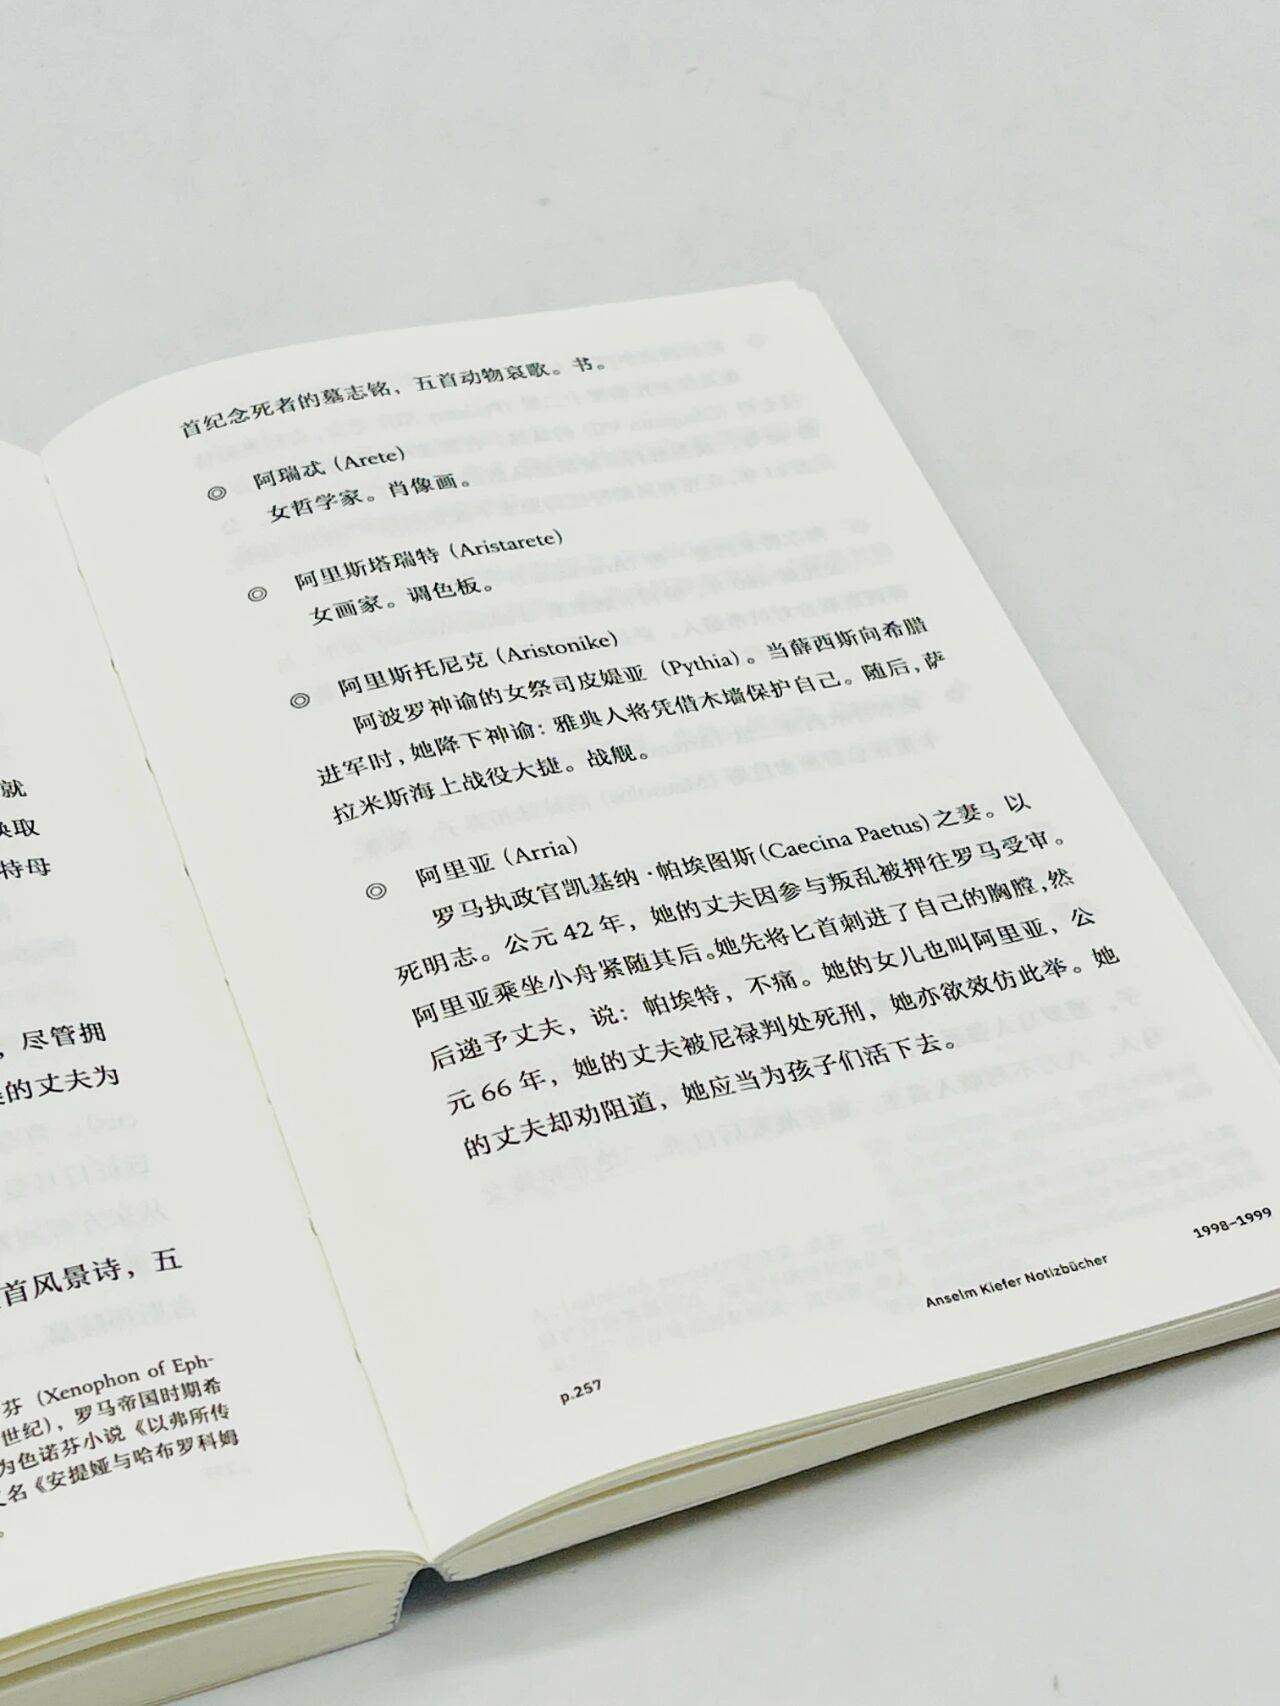 就
换取
特母
，尽管拥
的丈夫为
首风景诗，五
芬（Xenophon of Eph-
世纪），罗马帝国时期希
为色诺芬小说《以弗所传
名《安提娅与哈布罗科姆
。
首纪念死者的墓志铭，五首动物哀歌。书。
◎ 阿瑞忒（Arete）
女哲学家。肖像画。
◎ 阿里斯塔瑞特（Aristarete）
女画家。调色板。
◎ 阿里斯托尼克（Aristonike）
阿波罗神谕的女祭司皮媞亚（Pythia）。当薛西斯向希腊
进军时，她降下神谕：雅典人将凭借木墙保护自己。随后，萨
拉米斯海上战役大捷。战舰。
◎ 阿里亚（Arria）
罗马执政官凯基纳·帕埃图斯（Caecina Paetus）之妻。以
死明志。公元 42 年，她的丈夫因参与叛乱被押往罗马受审。
阿里亚乘坐小舟紧随其后。她先将匕首刺进了自己的胸膛，然
后递予丈夫，说：帕埃特，不痛。她的女儿也叫阿里亚，公
元 66 年，她的丈夫被尼禄判处死刑，她亦欲效仿此举。她
的丈夫却劝阻道，她应当为孩子们活下去。
p.257
Anselm Kiefer Notizbücher
1998–1999